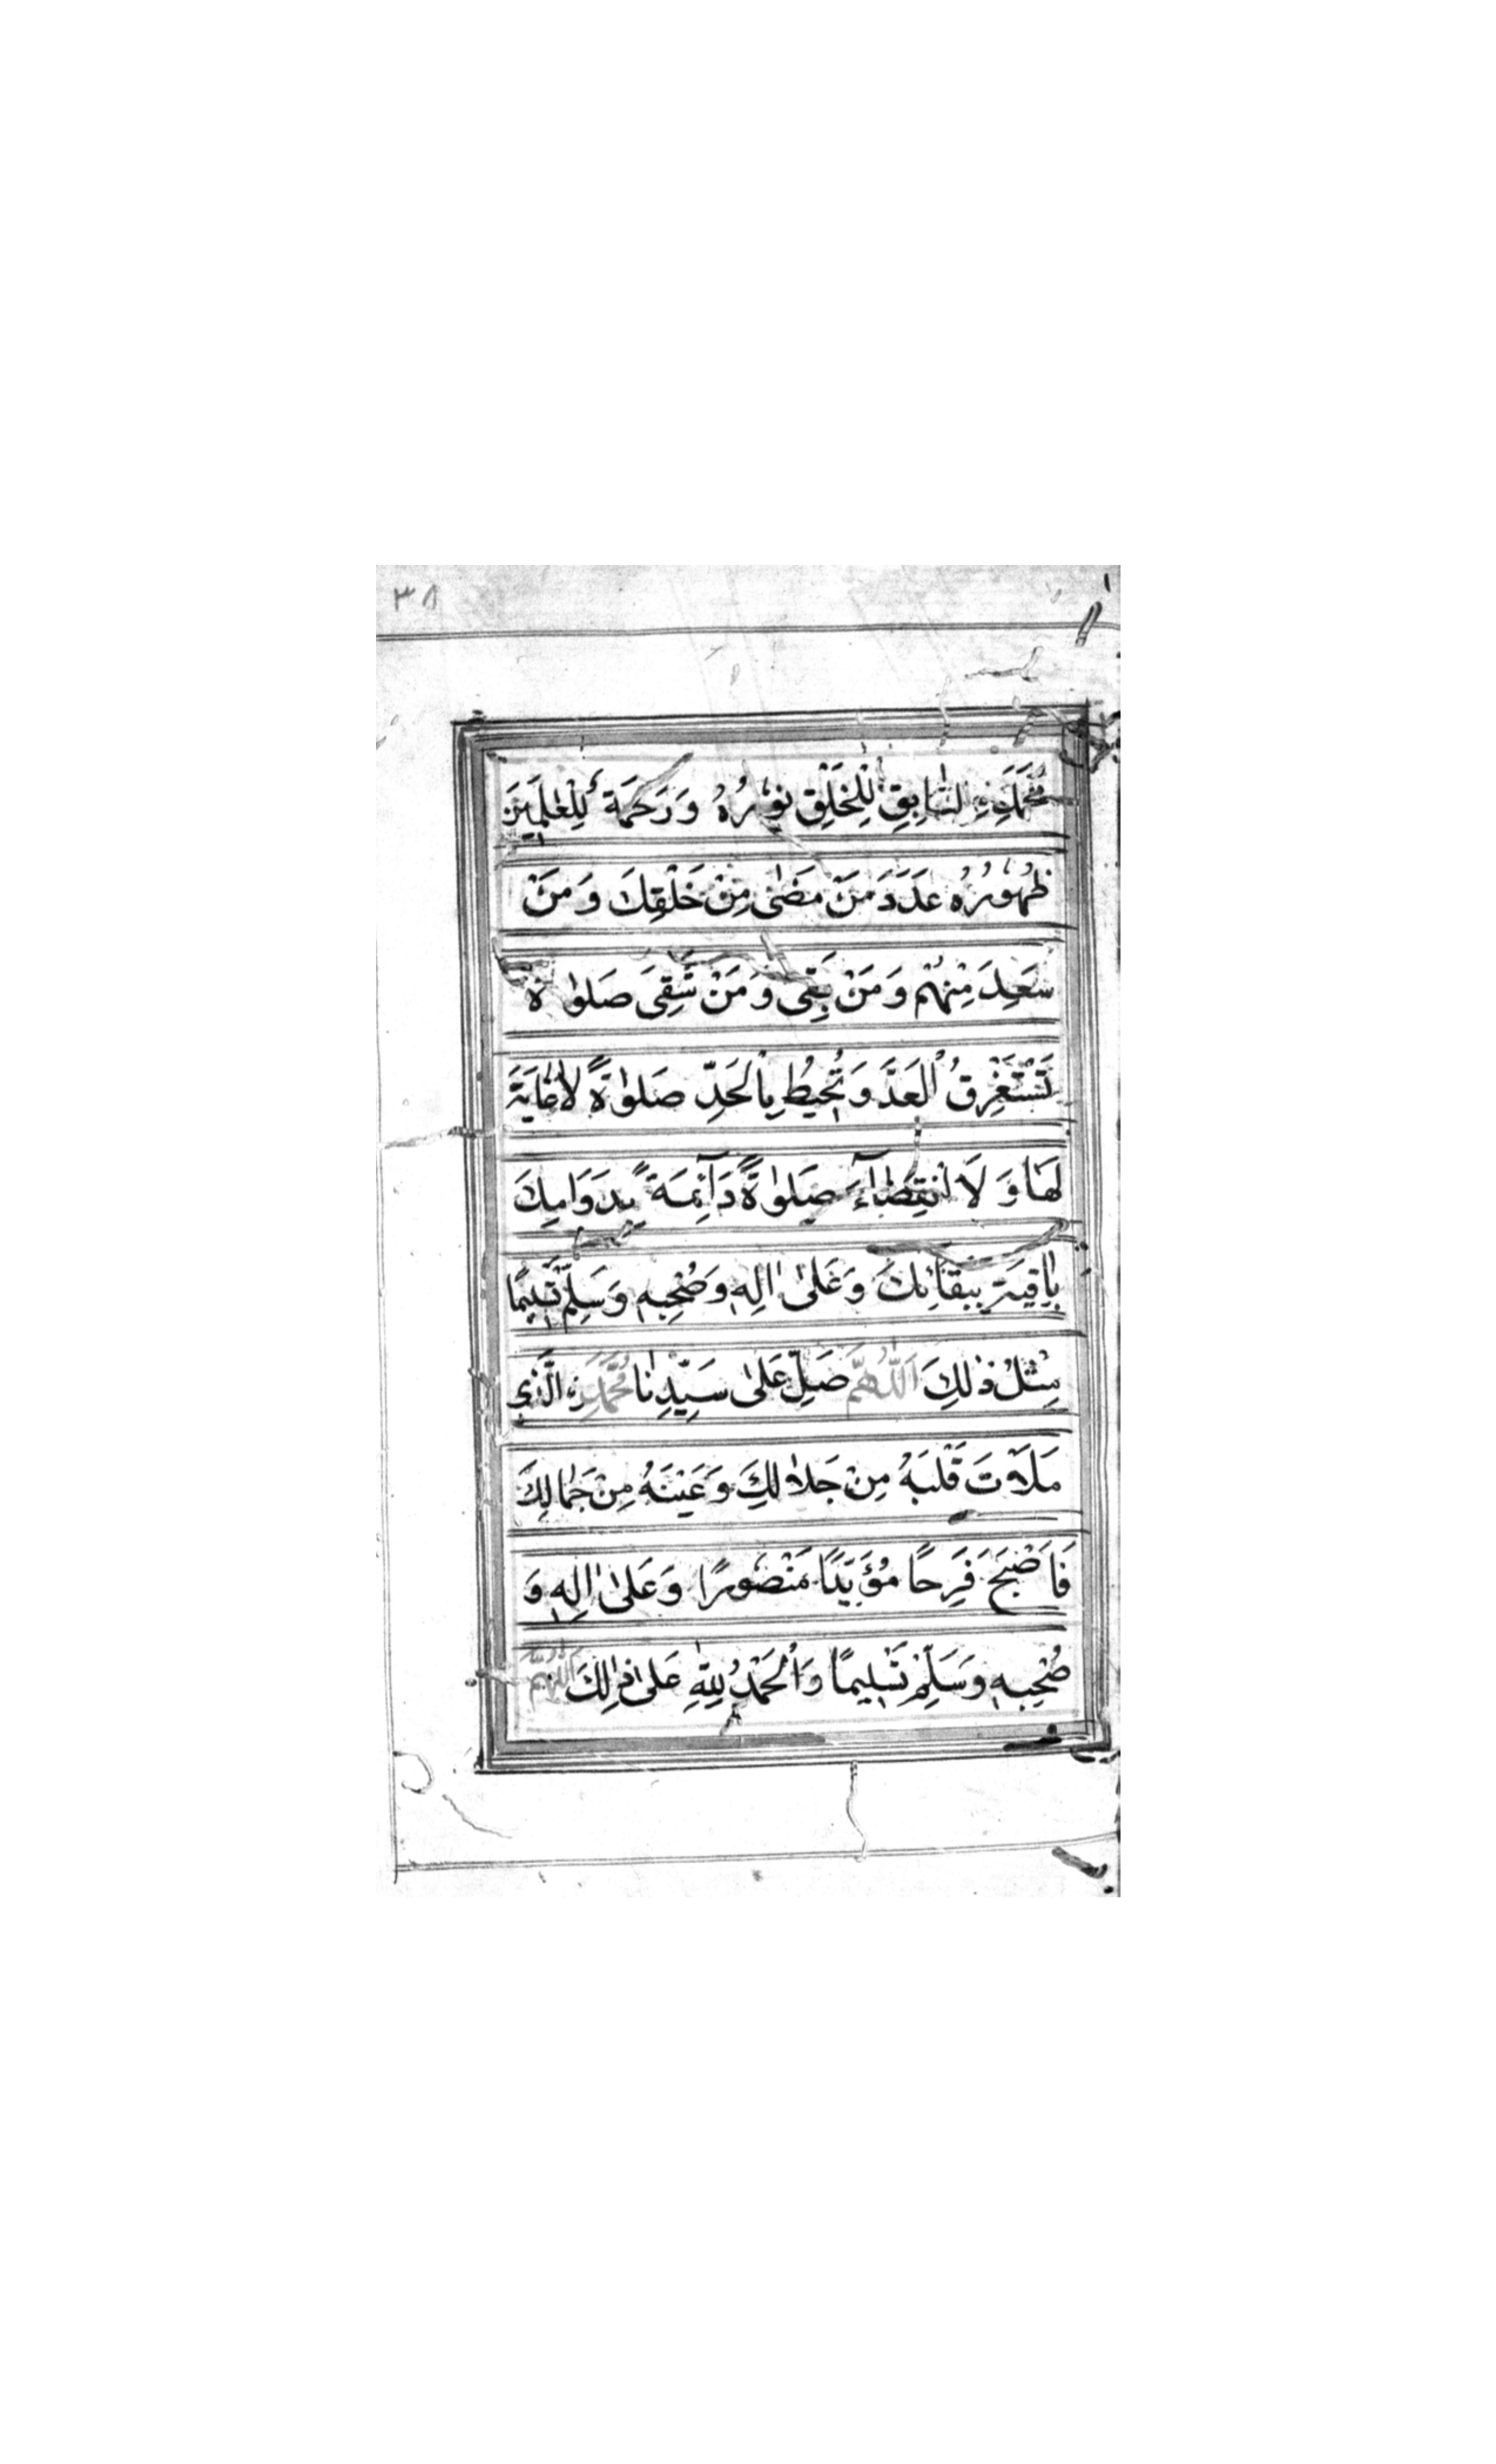 ٣٨
مُحَمَّدِنِ السَّابِقِ لِلْخَلْقِ نُوْرُهُ وَرَحْمَةٌ لِلْعٰلَمِيْنَ
ظُهُوْرُهُ عَدَدَ مَنْ مَضٰى مِنْ خَلْقِكَ وَمَنْ
سَعِدَ مِنْهُمْ وَمَنْ بَقِىَ وَمَنْ شَقِىَ صَلوٰةً
تَسْتَغْرِقُ الْعَدَّ وَتُحِيْطُ بِالْحَدِّ صَلوٰةً لَاغَايَةَ
لَهَا وَلَا انْقِضَآءَ صَلوٰةً دَآئِمَةً بِدَوَامِكَ
بَاقِيَةً بِبَقَائِكَ وَعَلٰى اٰلِهٖ وَصُحْبِهٖ وَسَلِّمْ تَسْلِيْمًا
مِثْلُ ذٰلِكَ اَللّٰهُمَّ صَلِّ عَلٰى سَيِّدِنَا مُحَمَّدِنِ الَّذِىْ
مَلَاْتَ قَلْبَهُ مِنْ جَلَالِكَ وَعَيْنَهُ مِنْ جَمَالِكَ
فَاَصْبَحَ فَرِحًا مُؤَيَّدًا مَنْصُوْرًا وَعَلٰى اٰلِهٖ وَ
صُحْبِهٖ وَسَلِّمْ تَسْلِيْمًا وَالْحَمْدُ لِلّٰهِ عَلٰى ذٰلِكَ اَللّٰهُمَّ